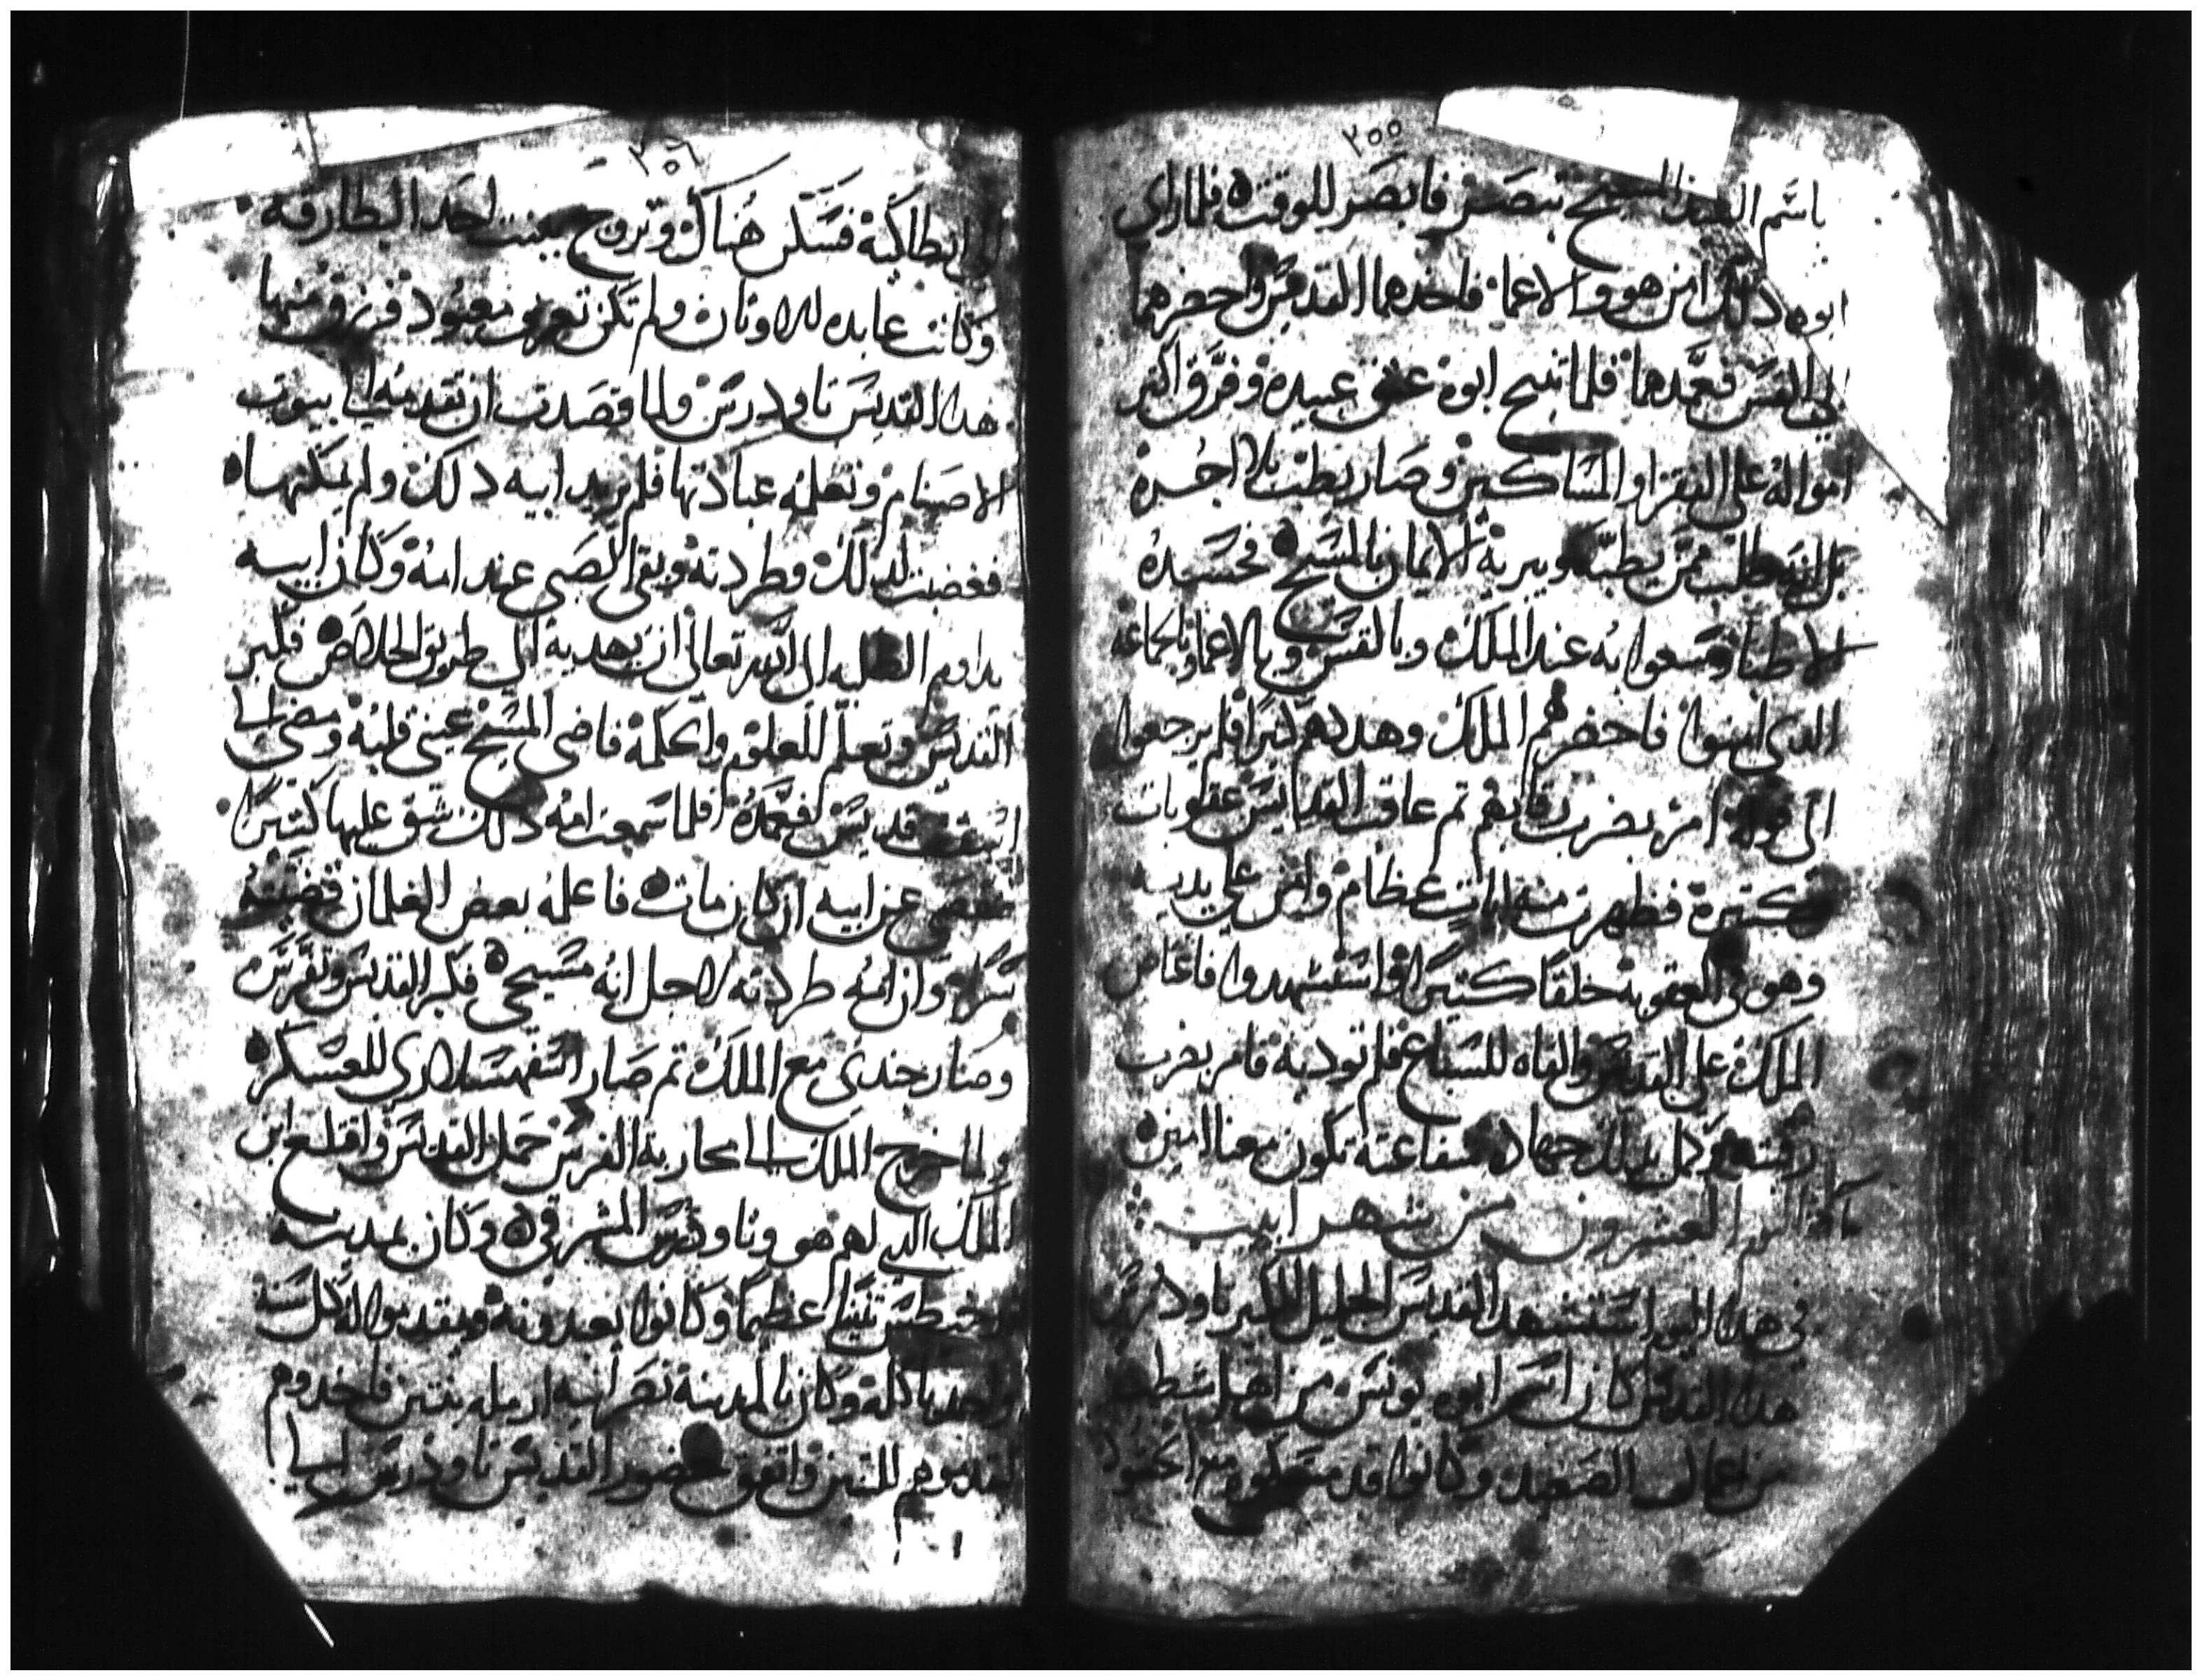 ٢٥٥
باسم السيد المسيح تبصر فابصر للوقت ه فلما راى
ابوه ذلك امن هو والاعما فاخدهما القديس واحضرهما
الى القس فعمدهما فلما تنيح ابوه عتق عبيده وفرق اكتر
امواله على الفقرا والمساكين وصار يطبب بلا اجره
بل انه طلب ممن يطببه ويبريه الايمان بالمسيح ه فحسده
الاطبا وسعوا به عند الملك وبالقس وبالاعما وبالجماعه
الدى امنوا فاحضرهم الملك وهددهم كتيرا فلم يرجعوا
الى قوله امر بضرب رقابهم تم عاقب القديس عقوبات
كتيرة فظهرت منه ايات عظام وامن على يديه
وهو فى العقوبة خلقا كتيرا واستشهدوا فاغتاض
الملك على القديس والقاه للسباع فلم توديه فامر بضرب
رقبته وكمل بذلك جهاده شفاعته تكون معنا امين ه
اليوم العشرون من شهر ابيب
فى هدا اليوم استشهد القديس الجليل تاودرس
هدا القديس كان اسم ابوه يونس من اهل شطب
من اعمال الصعيد وكانوا قد مع الجنود
٢٥٦
الى انطاكية فسكن هناك وتزوج ببنت احد البطارقه
وكانت عابده للاوتان ولم تكن تعرف معبود فرزق منها
هدا القديس تاودرس ولما قصدت ان تقدمه الى بيوت
الاصنام وتعلمه عبادتها فلم يريد ابيه دلك ولم يمكنها ه
فغضبت لدلك وطردته وبقى الصبى عند امه وكان ابيه
يداوم الطلبه الى الله تعالى ان يهديه الى طريق الخلاص ه فكبر
القديس وتعلم للعلوم والحكمة فاضى المسيح عينى قلبه ومضى الى
اسقف قديس فعمده فلما سمعت امه دلك شق عليها كتيرا
عن ابيه ان كان مات ه فاعلمه بعض الغلمان قضيته
سرا وان امه طردته لاجل انه مسيحى ه فكبر القديس وتفرس
وصار جندى مع الملك تم صار اسفهسلارى للعسكر ه
ولما خرج الملك الى محاربة الفرس حمل القديس واقتلع ابن
الملك الدى لهم هو وتاودرس المشرقى ه وكان بمدينة
اوخيطس تنينا عظيما وكانوا يعبدونه ويقدموا له كل سنه
واحد ياكله وكان بالمدينة نصرانيه ارمله بنتين فاخدوهم
ليقدموهم للتنين واتفق حضور القديس تاودرس الى